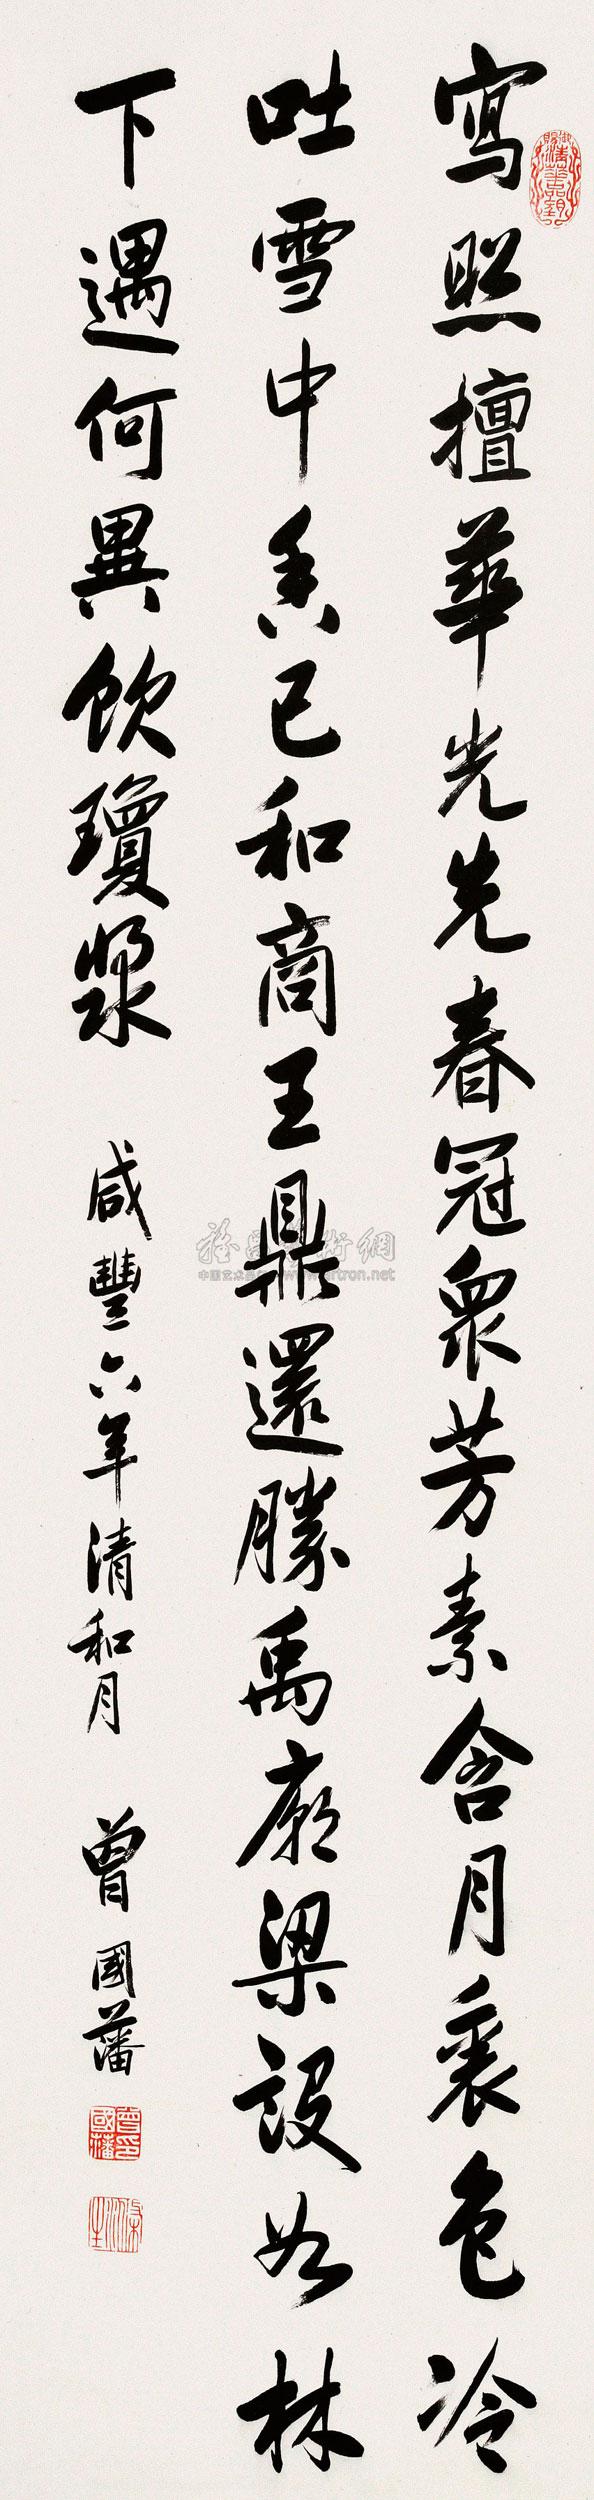 寫照擅華光先春冠衆芳素含月裏色冷
吐雪中香已和商王鼎還勝禹廟梁設如林
下遇何異飲瓊漿
咸豐六年清和月
曾國藩
中国艺术品
www.artron.net